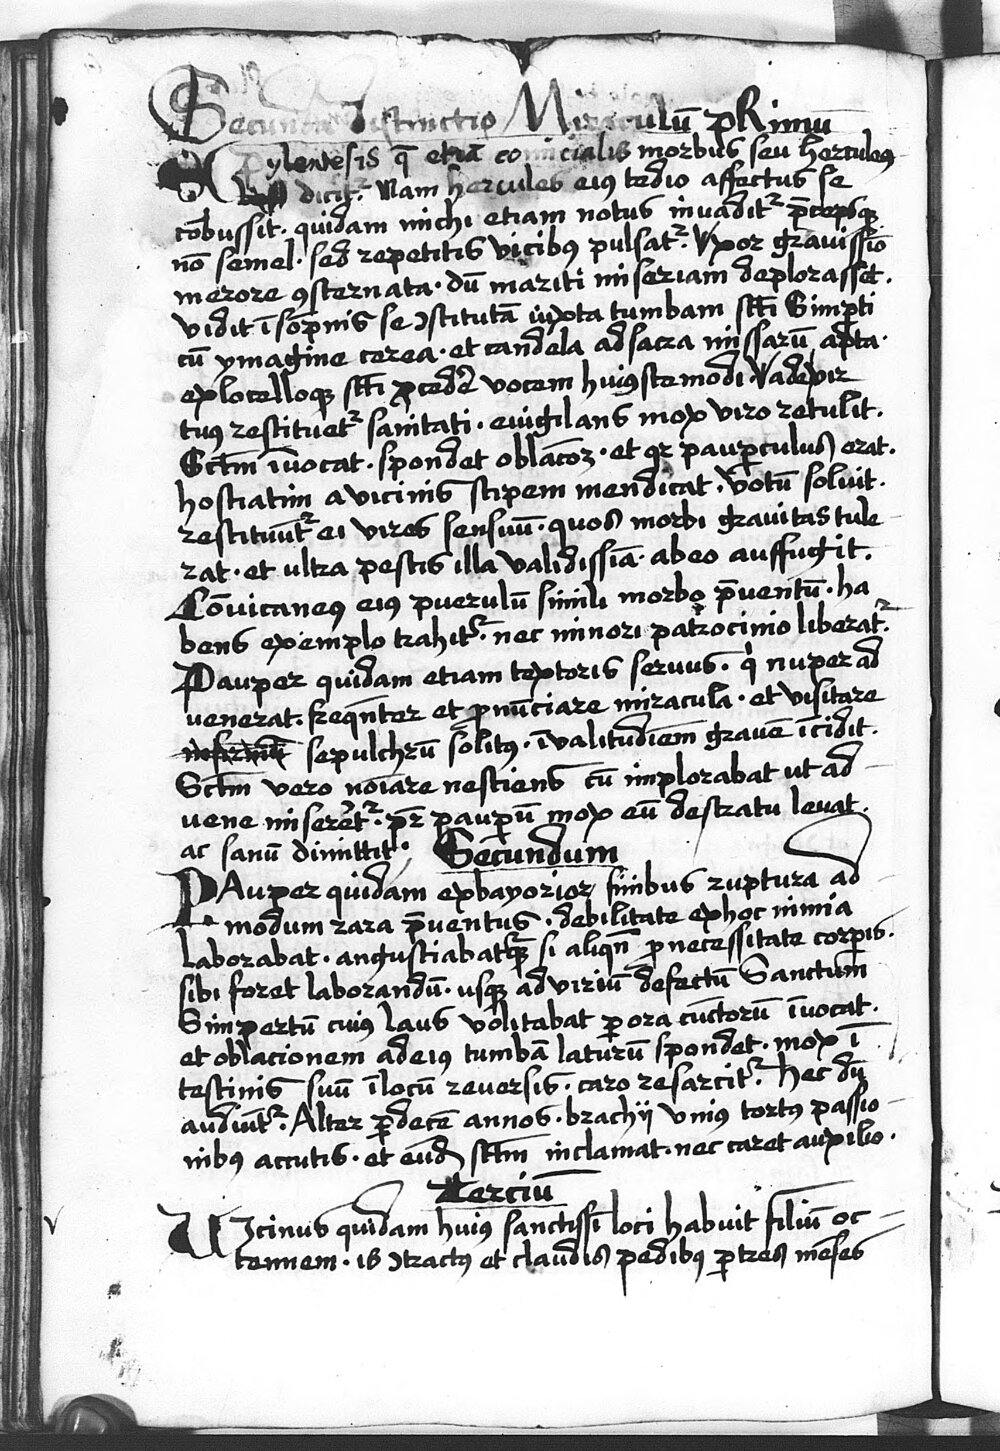 Secunda distinctio Miraculū pRimū
Epylenesis q̄ etiā comicialis morbus seu herculeꝰ
dicit᷑. Nam hercules eiꝰ tedio affectus se
cōbussit. quidam michi etiam notus invadit᷑ p̄cepsqꝫ
nō semel. sed repetitis vicibꝰ pulsat᷑. Vxor gravissīo
merore ꝯsternata. dū mariti miseriam deplorasset.
vidit ī sōpnis se ꝯstitutā iuxta tumbam sc̄ti Simp̱ti
cū ymagine cerea. et candela ad sacra missarū apta.
ex locelloqꝫ sc̄ti ꝓcedē vocem huiꝰstemodi. Vade vir
tuꝰ restituet᷑ sanitati. evigilans mox viro retulit.
Sctm̄ īvocat. spondet oblac̄oꝫ. et qꝛ paup̱culus erat.
hostiatim a vicinis stipem mendicat. Votū soluit.
restituūt᷑ ei vires sensuū. quos morbi gravitas tule
rat. et ultra pestis illa validissīa. ab eo auffugit.
Cōvicaneꝰ eiꝰ puerulū simili morbo p̄ventū. ha
bens exemplo trahit᷑. nec minori patrocinio liberat᷑.
Pauper quidam etiam textoris servus. qͥ nuper ad
venerat. freqn̄ter et ꝓnūciare miracula. et visitare
sepulchrū solitꝰ. ī valitudīem gravē īcidit.
Sctm̄ vero noīare nesciens cū implorabat ut ad
vene miseret᷑. pr̄ paup̱ū mox eū de stratu levat.
ac sanū dimittit. Secundum
PAuper quidam ex bayorioꝝ finibus ruptura ad
modum rara p̄ventus. debilitate ex hoc nimia
laborabat. angustiabatqꝫ si aliqn̄ ꝓ necessitate corp̱is.
sibi foret laborandū. usqꝫ ad viriū defectū Sanctum
Simpertū cuiꝰ laus volitabat p̱ ora cunctorū īvocat.
et oblacionem ad eiꝰ tumbā laturū spondet. mox ī
testinis suū ī locū reversis. caro resarcit᷑. Hec dū
audiūt᷑. Alter p̱ decē annos. brachij vniꝰ tortꝰ passio
nibꝰ accutis. et eūdē sc̄tm inclamat. nec caret auxilio.
Terciū
VJcinus quidam huiꝰ sanctissī loci habuit filiū oc
tennem. is ꝯtractꝰ et claudis pedibꝰ p̱ tres mēses